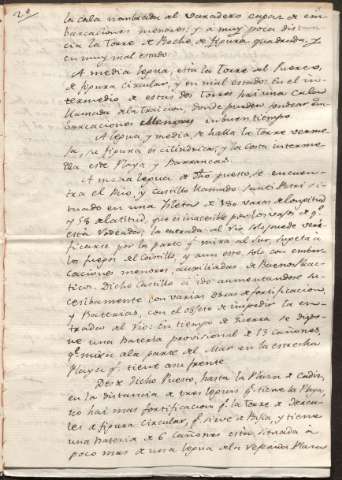 2.º
la cala nombrada al varadero capaz de em-
barcaciones menores; y a muy poca distan-
cia la Torre de Roche de figura quadrada, y
en muy mal estado.
A media legua, esta la Torre del Puerco,
de figura circular, y en mal estado. En el in-
termedio de estas dos Torres hai una cala
llamada de la traicion, donde pueden fondear em-
barcaciones menores en buen tiempo.
A legua y media, se halla la Torre verme-
ja, su figura es cilindrica, y la costa interme-
dia es de Playa y Barrancas.
A media legua de dho puesto, se encuen-
tra el Rio, y Castillo llamado Sancti Petri si-
tuado en una Isleta de 130 varas de longitud
y 58 de latitud, que es inacesible por los
está rodeado; la entrada al rio solo puede veri-
ficarse por la parte q.e mira al Sur, sugeta à
los fuegos del Castillo, y aun esto solo con embar-
caciones menores, auxiliadas de Buenos Prac-
ticos. Dicho Castillo a ido aumentandose su-
cesibamente con varias obras de fortificacion,
y Baterias, con el objeto de impedir la en-
trada al Rio: En tiempo de Guerra se
ne una Bateria provisional de 13 cañones,
q.e mira a la parte del Mar en la estrecha
Playa q.e tiene a su frente.
Desde Dicho Puesto, hasta la Plaza de Cadiz,
en la distancia de tres leguas q.e tiene la Playa,
no hai mas fortificacion q.e la Torre de Hercu-
les de figura circular, q.e sirve de Vigia, y tiene
una Bateria de 6 Cañones esta situada à
poco mas de una legua de la referida Plaza